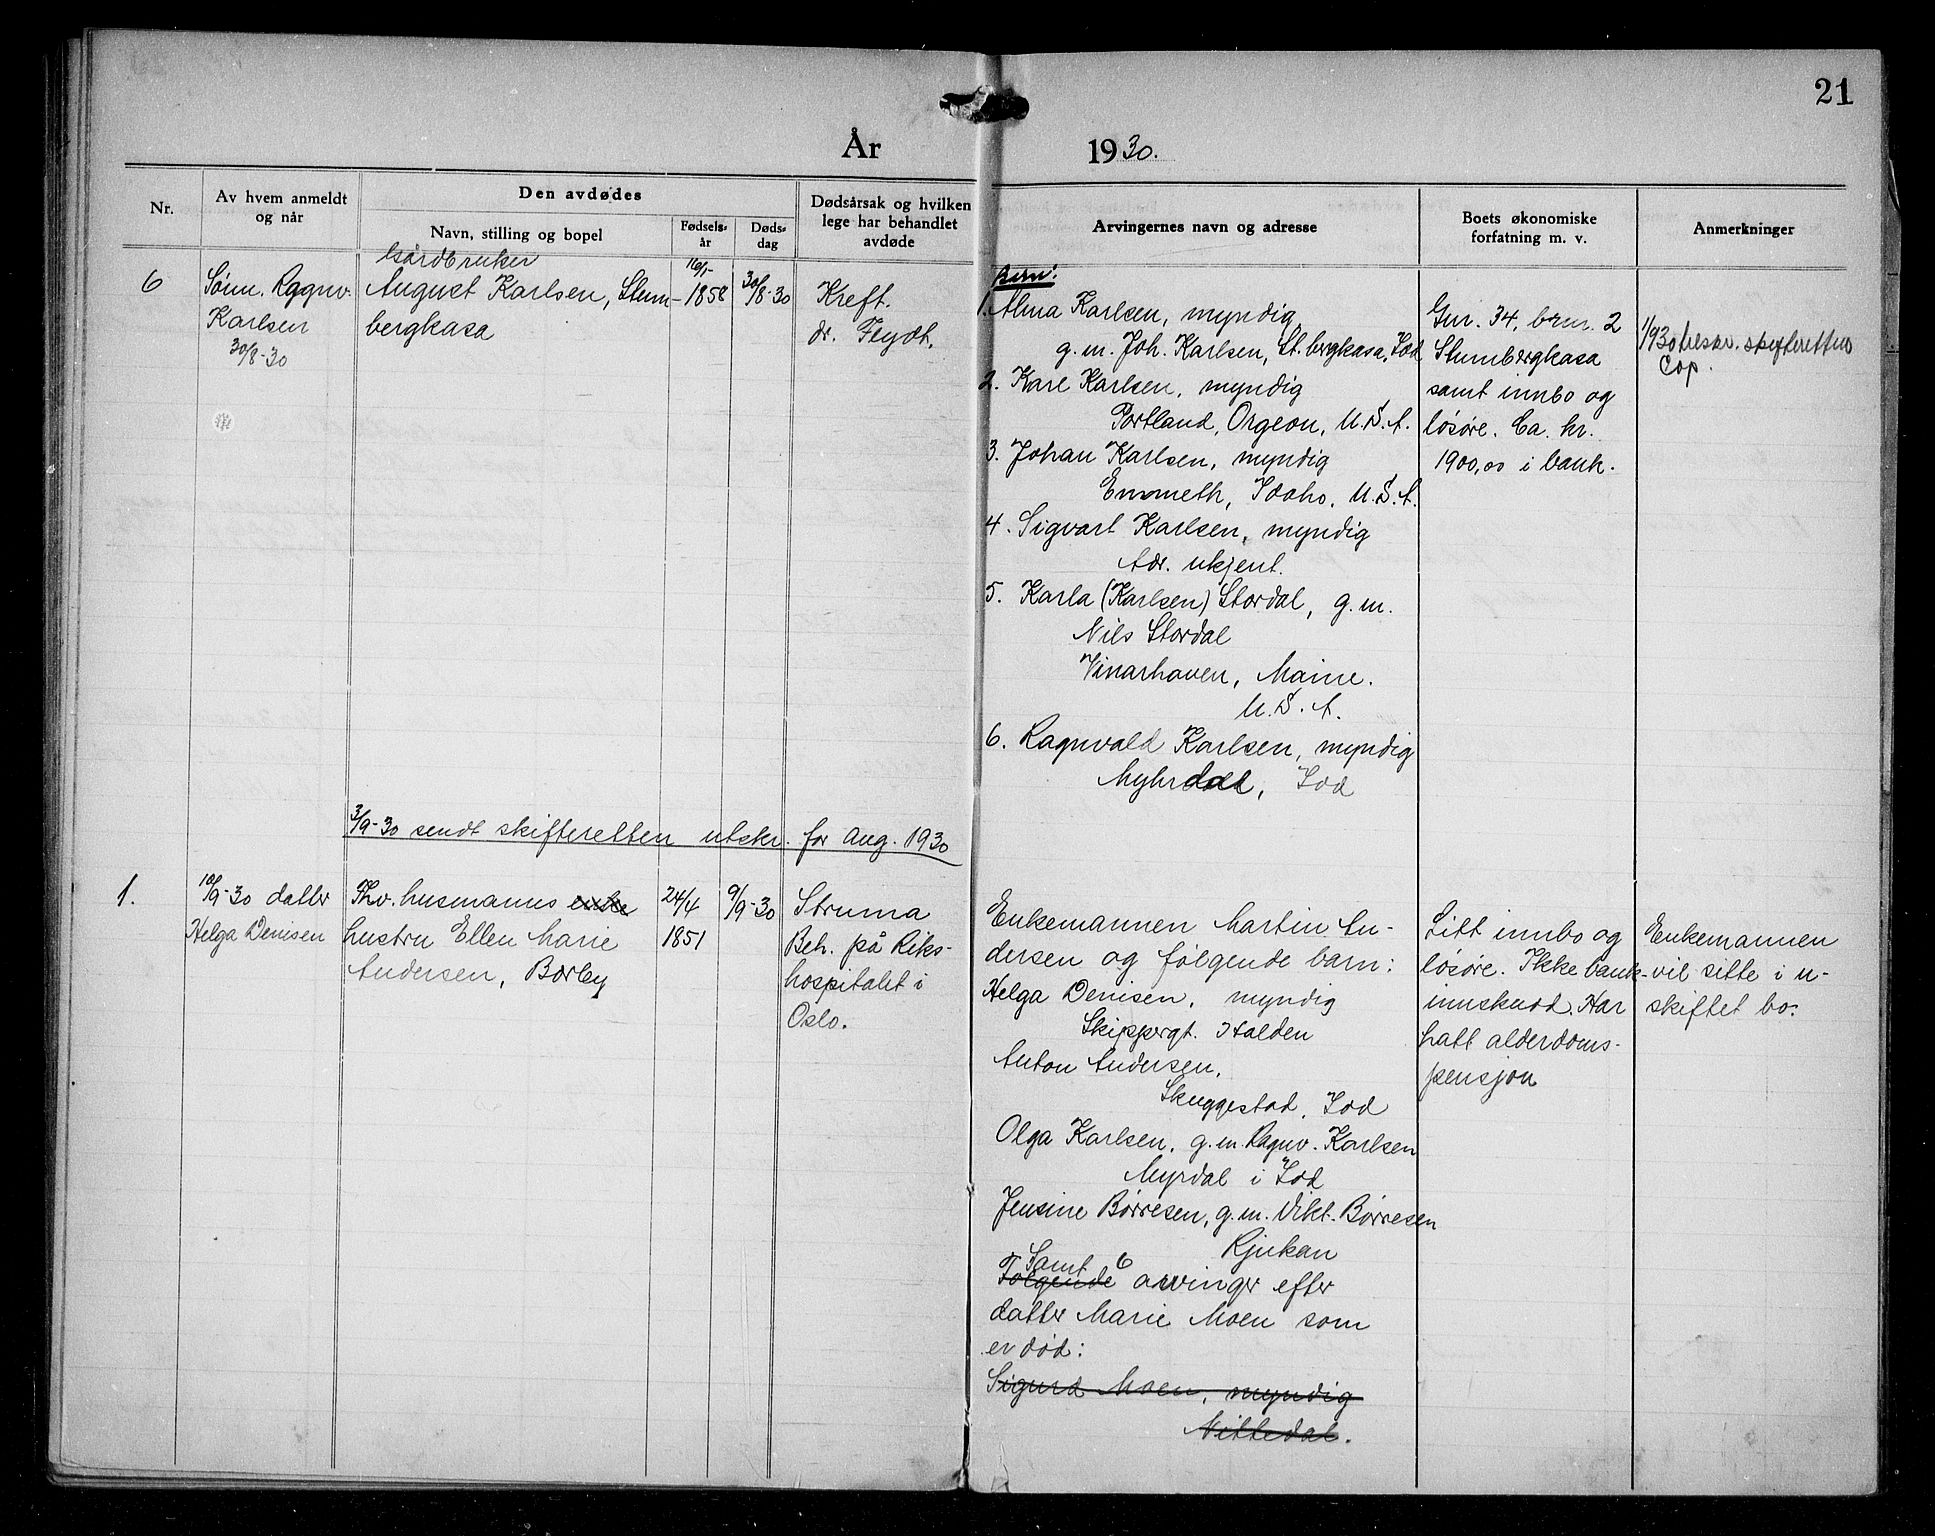 21
År 1930.
Nr.
Av hvem anmeldt
og når
Den avdødes
Navn, stilling og bopel
Fødsels-
år
Døds-
dag
Dødsårsak og hvilken
lege har behandlet
avdøde
Arvingernes navn og adresse
Boets økonomiske
forfatning m. v.
Anmerkninger
6
Sønn. Ragnv.
Karlsen
30/8-30
Gårdbruker
August Karlsen, Stum-
bergkasa
16/1-
1858
30/8-30
Kreft.
dr. Feydt.
Barn:
1. Alma Karlsen, myndig
g.m. Joh. Karlsen, St.bergkasa, Idd
2. Karl Karlsen, myndig
Portland, Orgeon, U.S.A.
3. Johan Karlsen, myndig
Emmeth, Idaho, U.S.A.
4. Sigvart Karlsen, myndig
Adr. ukjent.
5. Karla (Karlsen) Stordal, g.m.
Nils Stordal
Vinarhaven, Maine.
U.S.A.
6. Ragnvald Karlsen, myndig
Myhrdal, Idd
Gnr. 34, brnr. 2
Stumbergkasa
samt innbo og
løsøre. Ca. kr.
1900,00 i bank.
1/9 30 tilskr. skifteretten
Cop.
3/9-30 sendt skifteretten utskr. for Aug. 1930
1.
10/9-30 datter
Helga Denisen
Fhv. husmanns enke
hustru Ellen Marie
Andersen, Børby
24/4
1851
9/9-30
Struma
Beh. på Riks-
hospitalet i
Oslo.
Enkemannen Martin An-
dersen og følgende barn:
Helga Denisen, myndig
Skippergt. Halden
Anton Andersen,
Skuggestad, Idd
Olga Karlsen, g.m. Ragnv. Karlsen
Myrdal i Idd
Jensine Børresen, g.m. Vikt. Børresen
Rjukan
Samt 6
Følgende arvinger efter
datter Marie Moen som
er død:
Sigurd Moen, myndig
Nittedal.
Litt innbo og
løsøre. Ikke bank-
innskudd. Har
hatt alderdoms-
pensjon
Enkemannen
vil sitte i u-
skiftet bo.